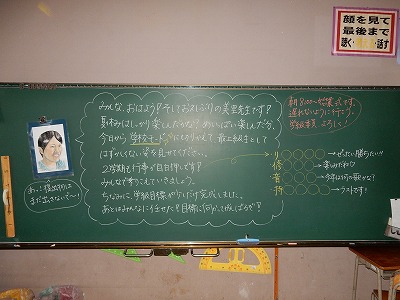 顔を見て
最後まで
聴く・話す
みんな、おはよう!そしておひさしぶりの美里先生です!
夏休みはしっかり楽しんだかな?めいっぱい楽しんだ分、
今日から学校モードにきりかえて最上級生として
はずかしくない姿を見せてください。
2学期も行事が目白押しです!
みんなで乗りこえていきましょう。
ちなみに、学級目標が少しだけ完成しました。
あとはみんなに任せた!目標に向かってがんばろう!
朝8:00~始業式です。
遅れないように行こう。
学級委員よろしく!
→ぜったい勝ちたい!!
→楽しみだね♡
→今年は何の歌かな?
→ラストです!
あっ!提出物は
まだ出さないで~!